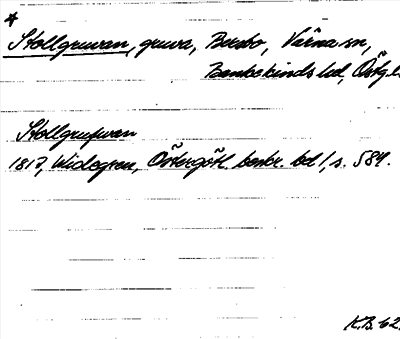 *
Stollgruvan, gruva, Bersbo, Värna sn,
Bankekinds hd, Östg.l.
Stollgrufwan
1817, Widegren, Östergötl. beskr. bd 1, s. 584.
K.B. 62.